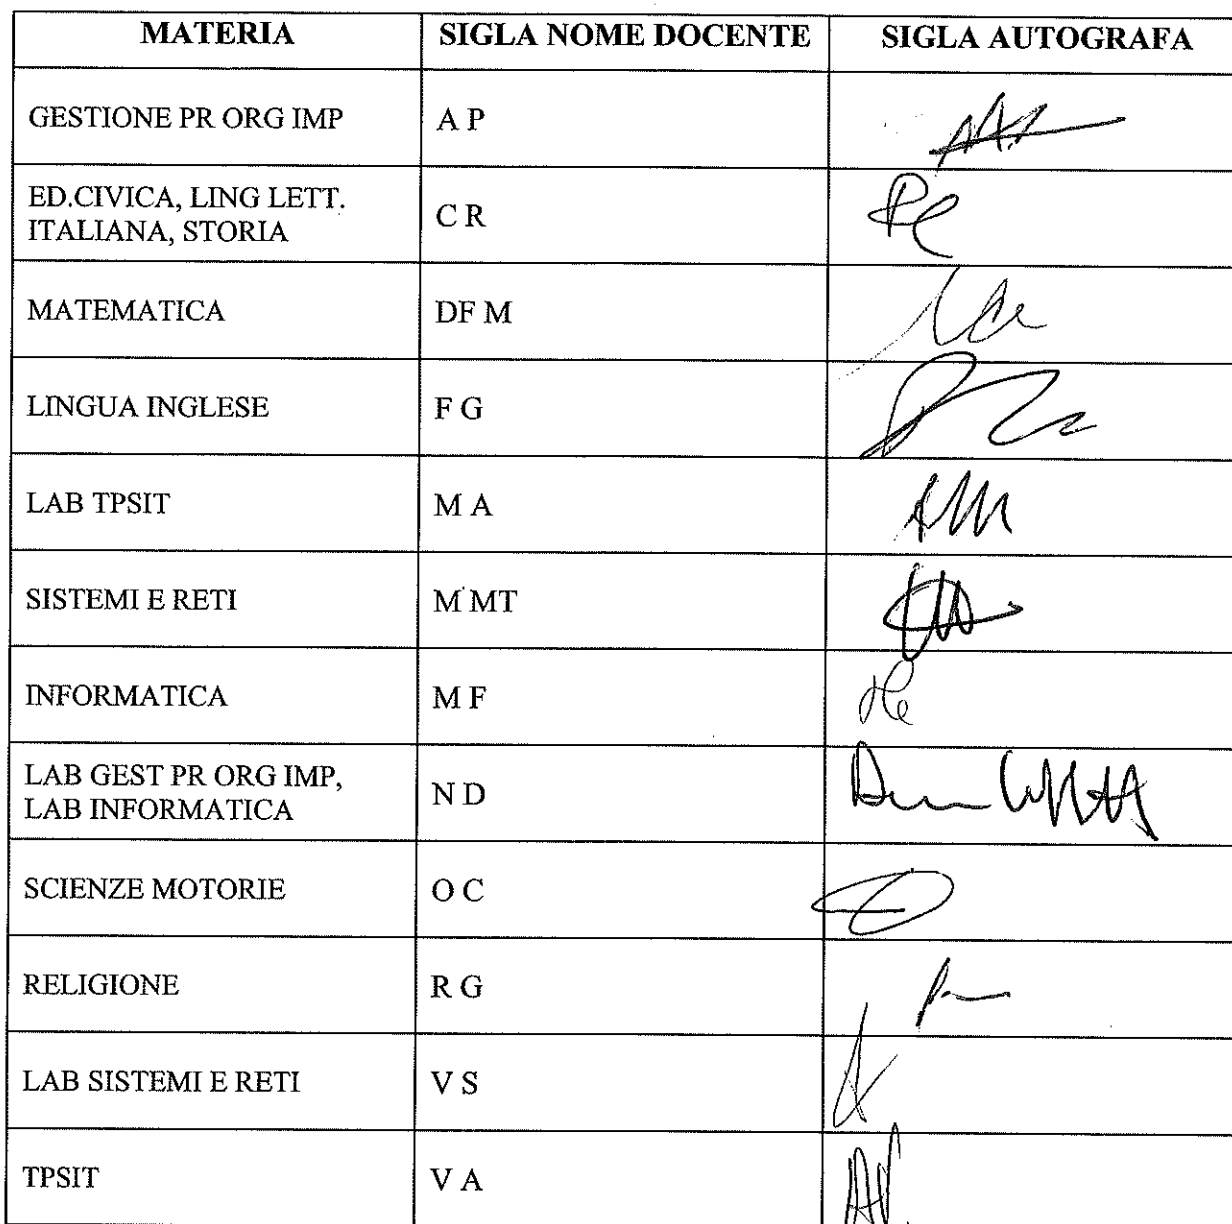 MATERIA SIGLA NOME DOCENTE SIGLA AUTOGRAFA
GESTIONE PR ORG IMP A P
ED.CIVICA, LING LETT.
ITALIANA, STORIA C R
MATEMATICA DF M
LINGUA INGLESE F G
LAB TPSIT M A
SISTEMI E RETI M MT
INFORMATICA M F
LAB GEST PR ORG IMP,
LAB INFORMATICA N D
SCIENZE MOTORIE O C
RELIGIONE R G
LAB SISTEMI E RETI V S
TPSIT V A